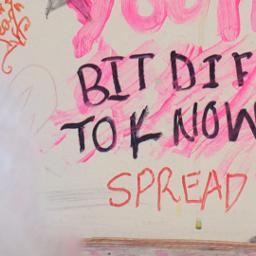 YOU
BIT DIF
TO KNOW
SPREAD